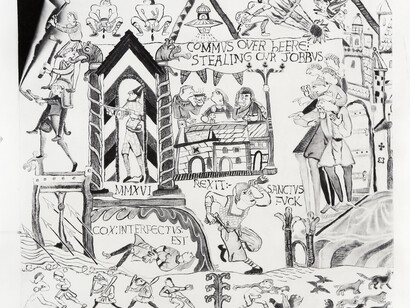 COMMVS OVER HEERE:
STEALING OVR JOBBVS
MMXVI
REXIT:
SANCTVS
FVCK
COX: INTERFECTVS
EST